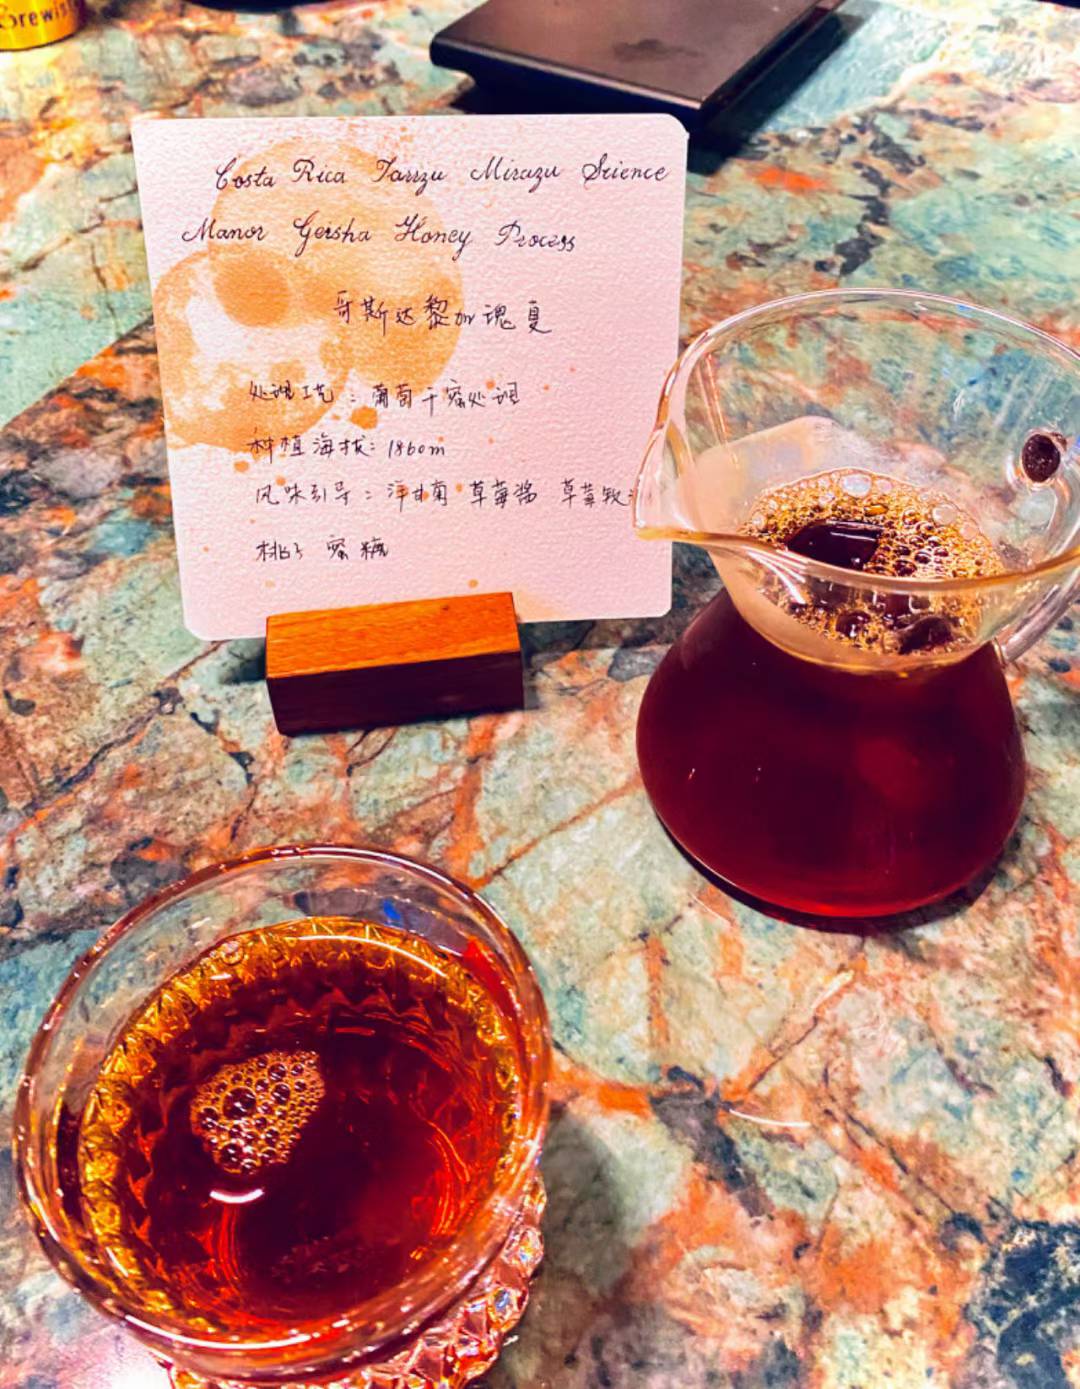 Brewist
Costa Rica Tarrzu Mirazu Science
Manor Geisha Honey Process
哥斯达黎加瑰夏
处理工艺：葡萄干蜜处理
种植海拔：1860m
风味引导：洋甘菊 草莓酱 草莓软
桃子 蜜糖